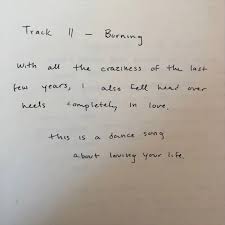 Track 11 — Burning
With all the craziness of the last
few years, i also fell head over
heels completely in love.
this is a dance song
about loving your life.